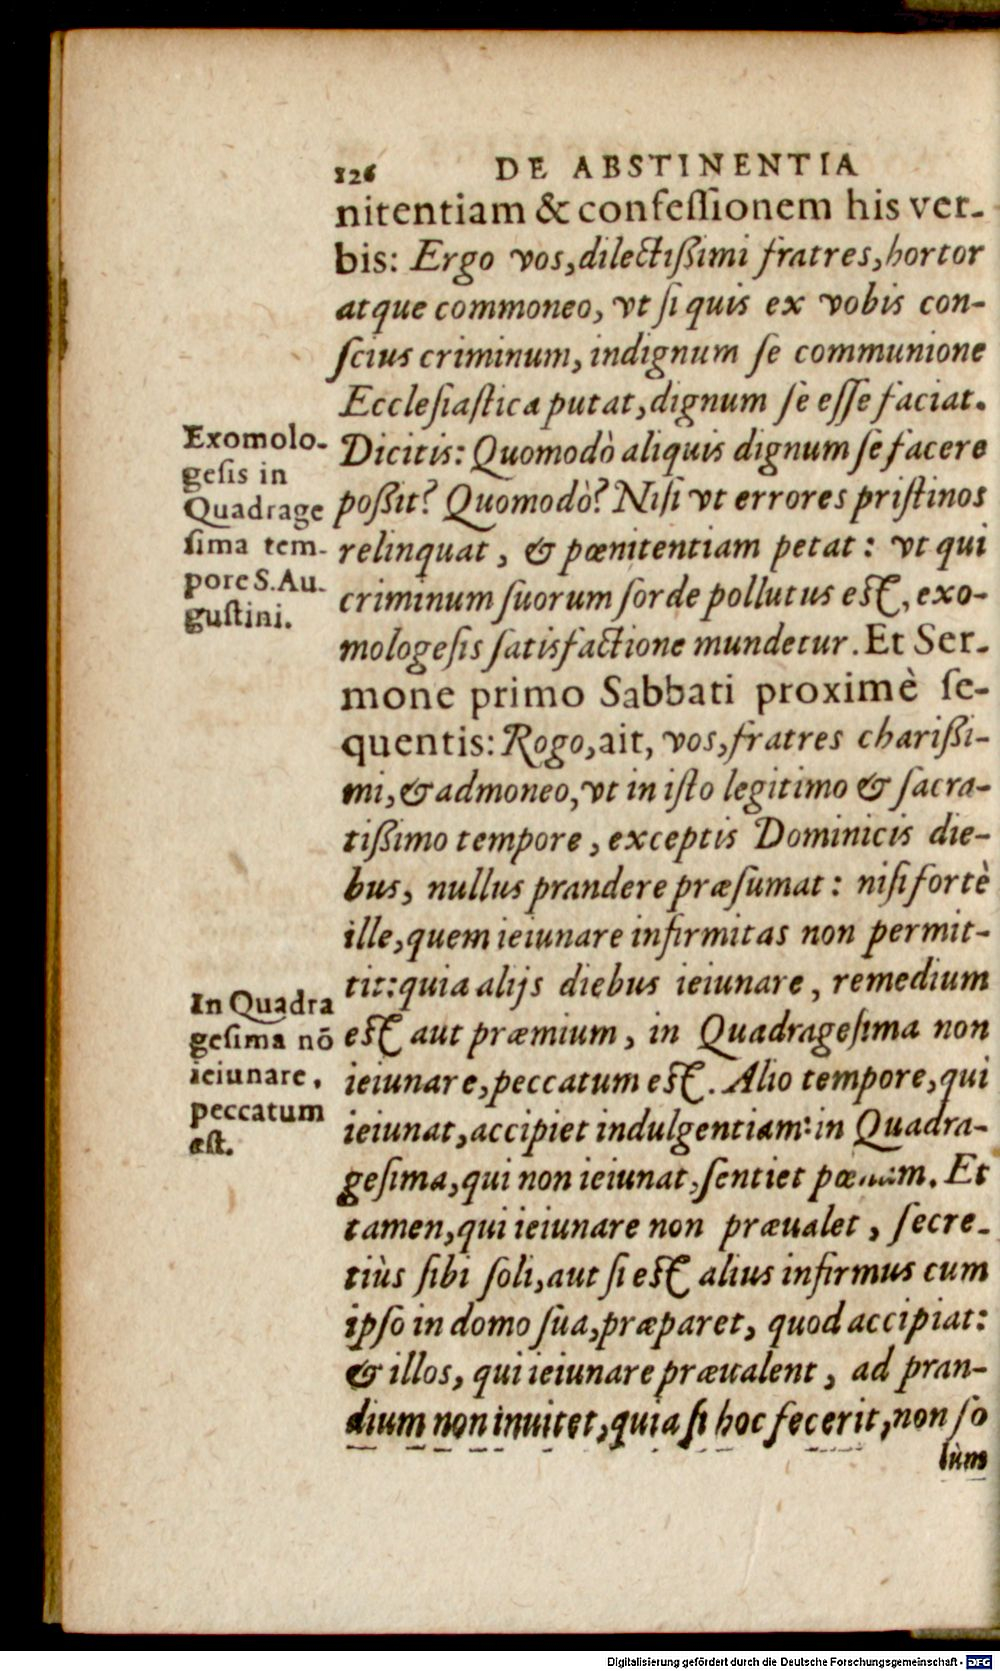 126 DE ABSTINENTIA
nitentiam & confeſſionem his ver-
bis: Ergo vos, dilectißimi fratres, hortor
atque commoneo, vt ſi quis ex vobis con-
ſcius criminum, indignum ſe communione
Eccleſiaſtica putat, dignum ſe eſſe faciat.
Exomolo-
geſis in
Quadrage
ſima tem-
pore S. Au-
guſtini.
Dicitis: Quomodò aliquis dignum ſe facere
poßit? Quomodò? Niſi vt errores priſtinos
relinquat, & pœnitentiam petat: vt qui
criminum ſuorum ſorde pollutus eſt, exo-
mologeſis ſatisfactione mundetur. Et Ser-
mone primo Sabbati proximè ſe-
quentis: Rogo, ait, vos, fratres charißi-
mi, & admoneo, vt in iſto legitimo & ſacra-
tißimo tempore, exceptis Dominicis die-
bus, nullus prandere præſumat: niſi fortè
ille, quem ieiunare infirmitas non permit-
tit: quia alijs diebus ieiunare, remedium
In Quadra
geſima nō
ieiunare,
peccatum
eſt.
eſt aut præmium, in Quadrageſima non
ieiunare, peccatum eſt. Alio tempore, qui
ieiunat, accipiet indulgentiam: in Quadra-
geſima, qui non ieiunat, ſentiet pœnam. Et
tamen, qui ieiunare non præualet, ſecre-
tiùs ſibi ſoli, aut ſi eſt alius infirmus cum
ipſo in domo ſua, præparet, quod accipiat:
& illos, qui ieiunare præualent, ad pran-
dium non inuitet, quia ſi hoc fecerit, non ſo
lùm
Digitalisierung gefördert durch die Deutsche Forschungsgemeinschaft - DFG